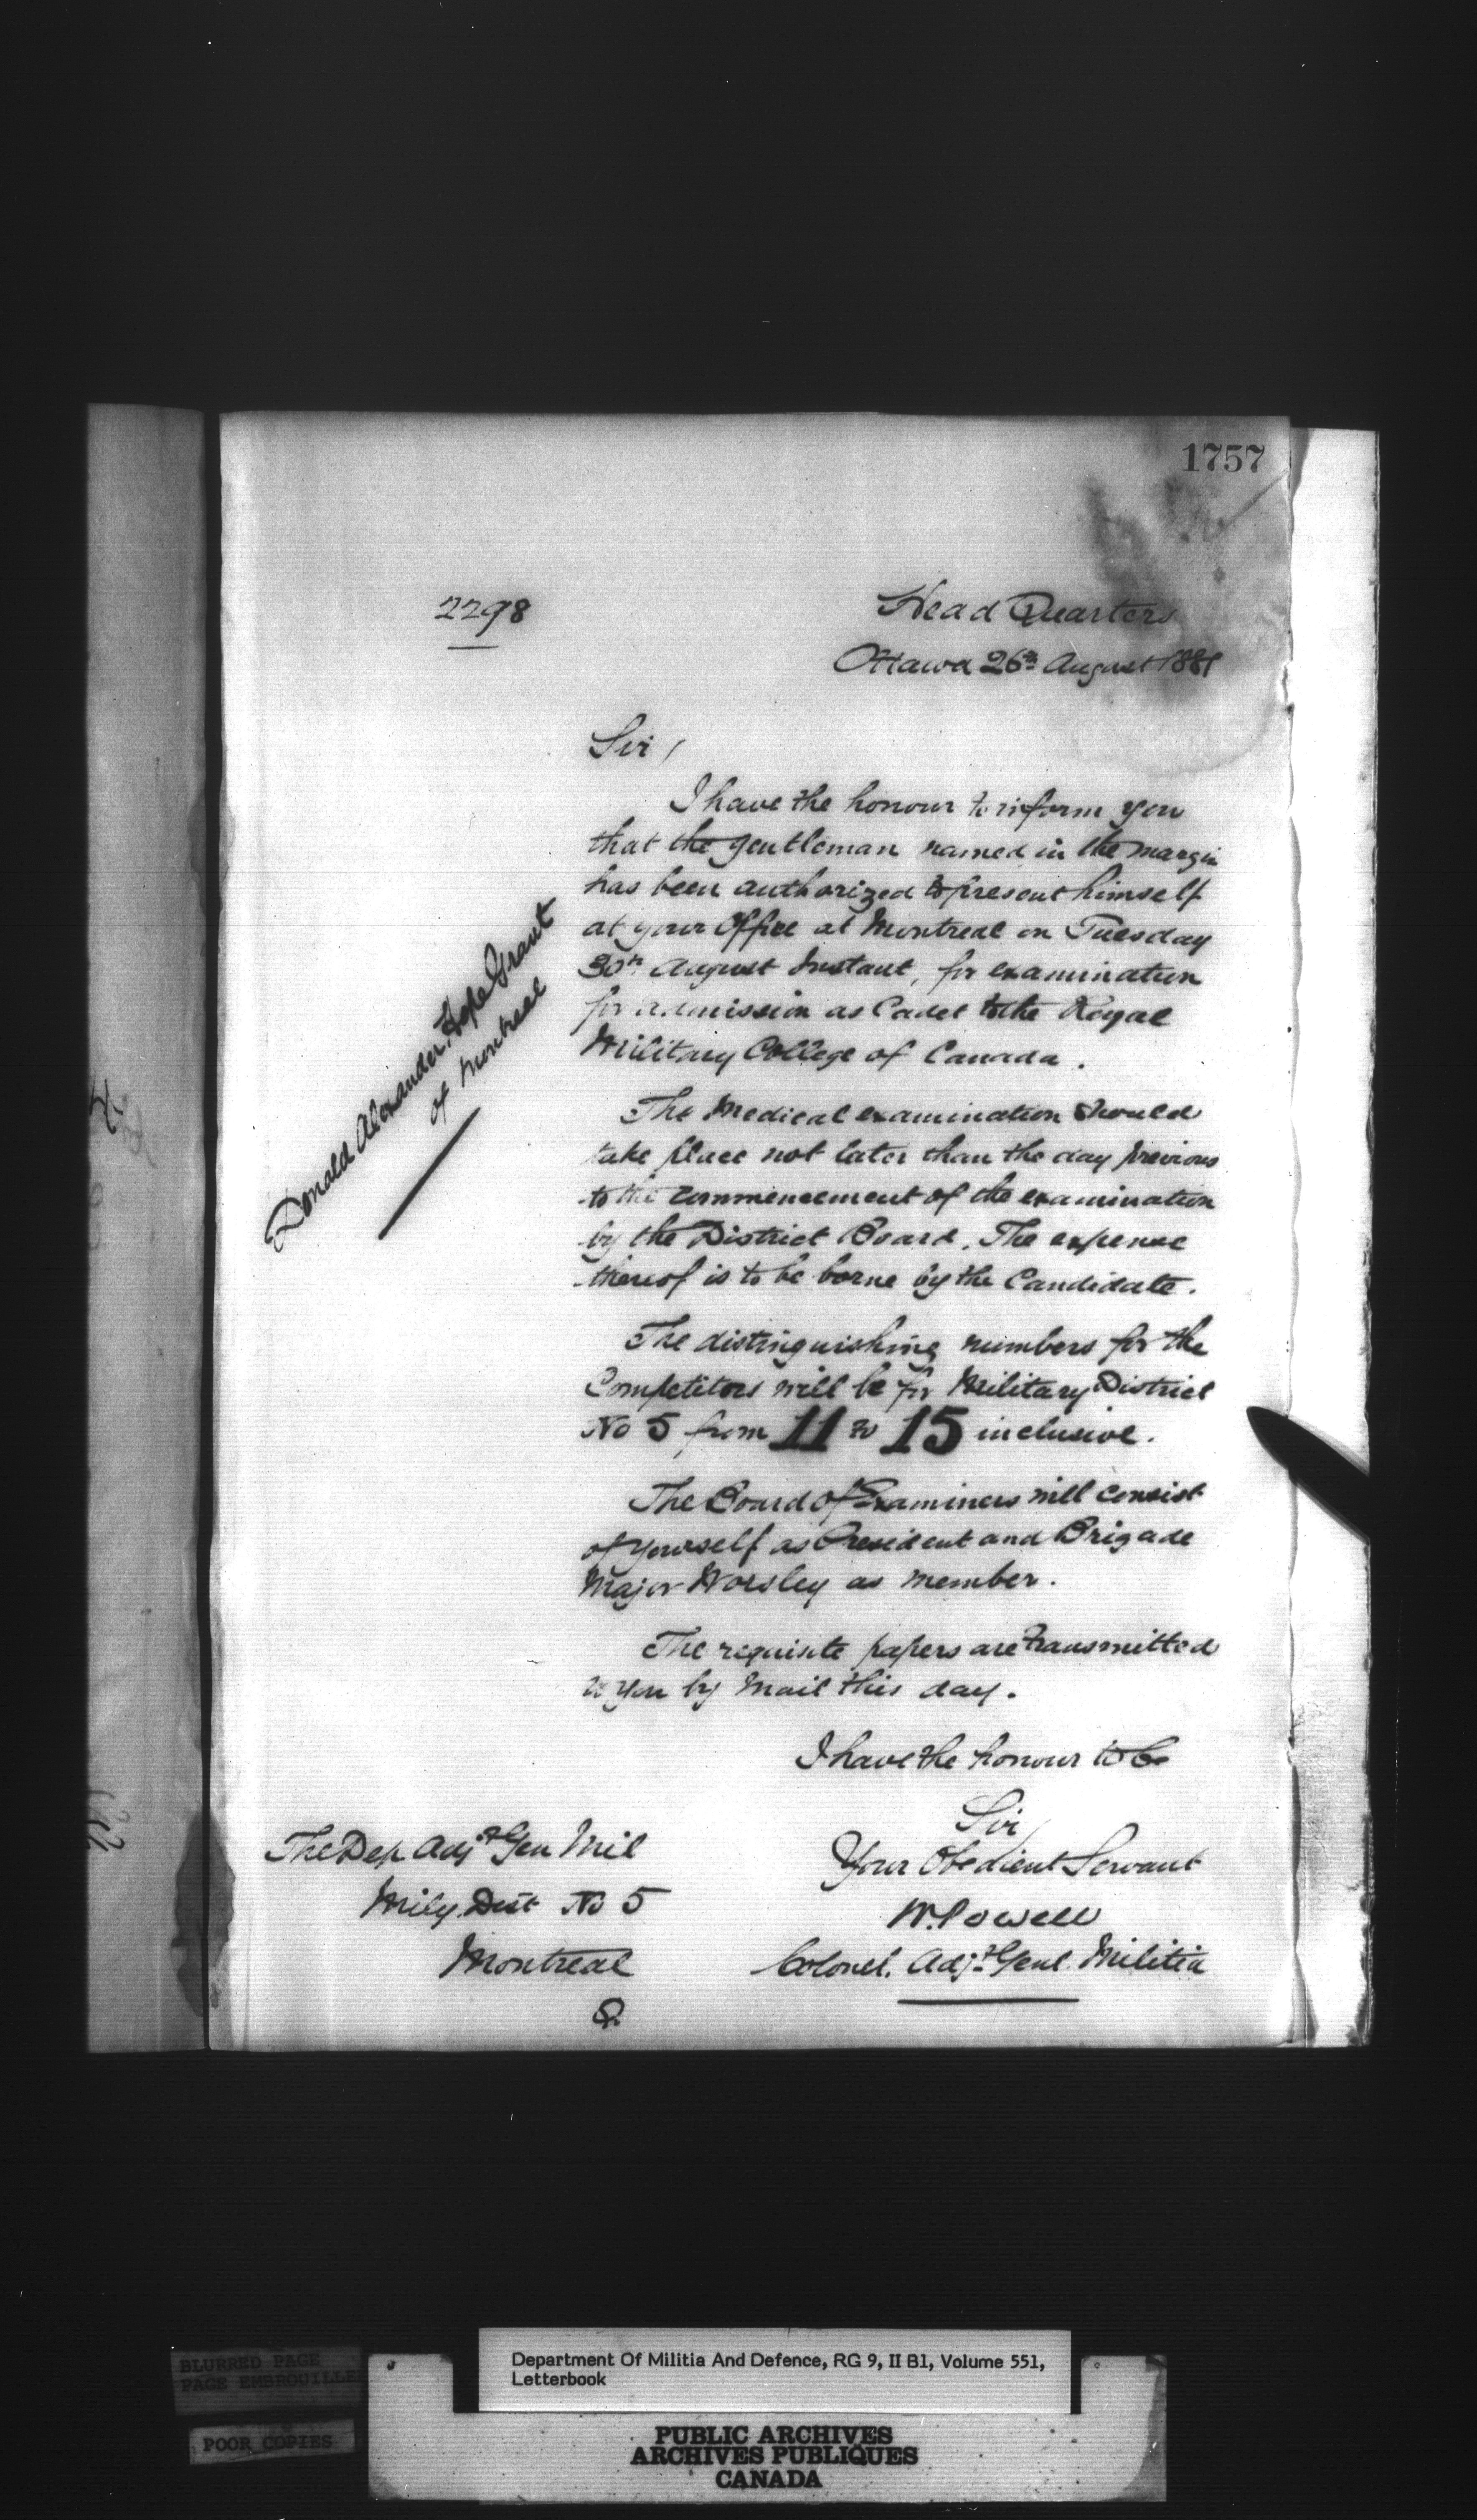 1757
2298
Head Quarters
Ottawa 26th August 1881
Sir,
I have the honour to inform you
that the gentleman named in the margin
has been authorized to present himself
at your Office at Montreal on Tuesday
30th August Instant, for examination
for admission as Cadet to the Royal
Military College of Canada.
Donald Alexander Hope Grant
of Montreal
The Medical examination should
take place not later than the day previous
to the commencement of the examination
by the District Board. The expense
thereof is to be borne by the Candidate.
The distinguishing numbers for the
Competitors will be for Military District
No 5 from 11 to 15 inclusive.
The Board of Examiners will consist
of yourself as President and Brigade
Major Worsley as member.
The requisite papers are transmitted
to you by Mail this day.
I have the honour to be
Sir
Your Obedient Servant
W. Powell
Colonel. Adjt Genl. Militia
The Dep Adjt Gen Mil
Mily Dist No 5
Montreal
Q.
Department Of Militia And Defence, RG 9, II B1, Volume 551,
Letterbook
BLURRED PAGE
PAGE EMBROUILLE
POOR COPIES
PUBLIC ARCHIVES
ARCHIVES PUBLIQUES
CANADA